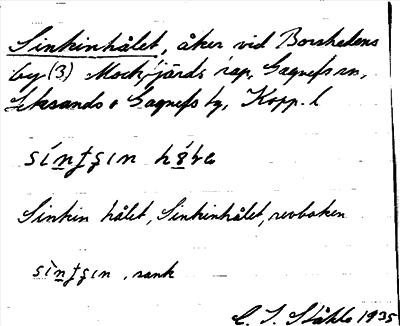 Sinkinhålet, åker vid Borshedens
by (3) Mockfjärds kap, Gagnefs sn,
Leksands o Gagnefs tg, Kopp. l
Sinkin hålet, Sinkinhålet, revboken
, sank
C. I. Ståhle 1935